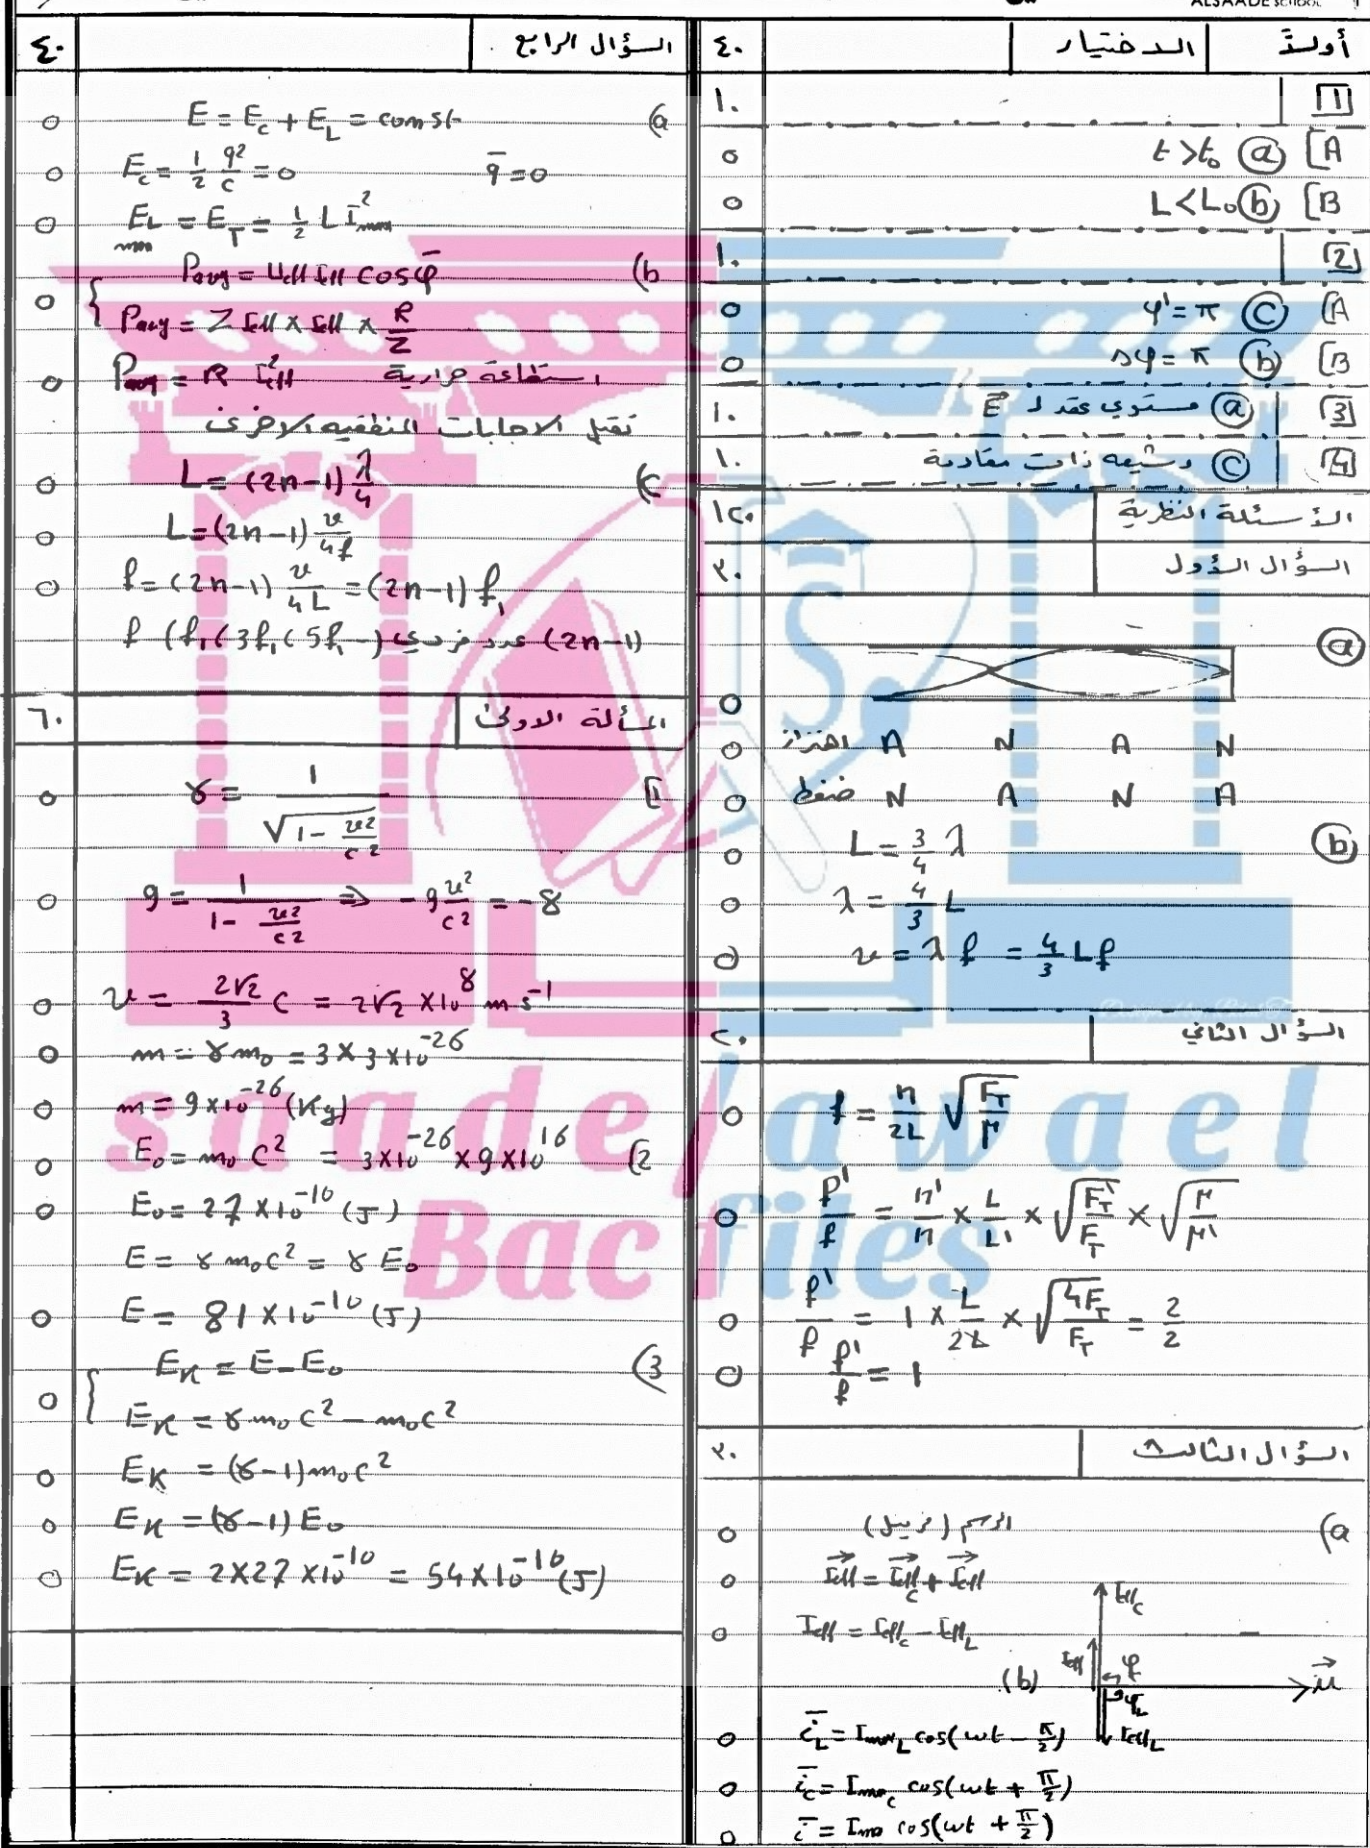 ALSAADE SCHOOL
أولاً الاختيار ٤٠
1 ١٠
A] a t > t₀ ٥
B] b L < L₀ ٥
2 ١٠
A] c φ' = π ٥
B] b Δφ = π ٥
3 a مستوي عقد لـ E ١٠
4 c وشيعة ذات مقاومة ١٠
الأسئلة النظرية ١٢٠
السؤال الأول ٢٠
a
٥
اهتزاز A N A N ٥
ضغط N A N A ٥
b L = 3/4 λ ٥
λ = 4/3 L ٥
v = λ f = 4/3 L f ٥
السؤال الثاني ٢٠
f = n/2L √(F_T/μ) ٥
f'/f = n'/n × L/L' × √(F'_T/F_T) × √(μ/μ') ٥
f'/f = 1 × L/2L × √(4F_T/F_T) = 2/2 ٥
f'/f = 1 ٥
السؤال الثالث ٢٠
a) الرسم (فرينل) ٥
I⃗eff = I⃗eff_C + I⃗eff_L ٥
Ieff = Ieff_C − Ieff_L ٥
Ieff_C
Ieff φ
u⃗
φ_L
Ieff_L
b)
i̅_L = Imax_L cos(ωt − π/2) ٥
i̅_C = Imax_C cos(ωt + π/2) ٥
i̅ = Imax cos(ωt + π/2) ٥
السؤال الرابع ٤٠
a) E = E_C + E_L = const ٥
E_C = 1/2 q²/C = 0 q̅ = 0 ٥
E_L max = E_T = 1/2 L I²max ٥
b) Pavg = Ueff Ieff cos φ̅
Pavg = Z Ieff × Ieff × R/Z ٥
Pavg = R I²eff استطاعة حرارية ٥
تقبل الاجابات المنطقيه الاخرى
c) L = (2n−1) λ/4 ٥
L = (2n−1) v/4f ٥
f = (2n−1) v/4L = (2n−1) f₁ ٥
(2n−1) عدد فردي f (f₁, 3f₁, 5f₁ ـ)
المسألة الاولى ٦٠
1] γ = 1/√(1 − v²/c²) ٥
9 = 1/(1 − v²/c²) ⇒ −9 v²/c² = −8 ٥
v = 2√2/3 c = 2√2 × 10⁸ m s⁻¹ ٥
m = γ m₀ = 3 × 3 × 10⁻²⁶ ٥
m = 9 × 10⁻²⁶ (Kg) ٥
2) E₀ = m₀ c² = 3 × 10⁻²⁶ × 9 × 10¹⁶ ٥
E₀ = 27 × 10⁻¹⁰ (J) ٥
E = γ m₀ c² = γ E₀
E = 81 × 10⁻¹⁰ (J) ٥
3) E_K = E − E₀
E_K = γ m₀ c² − m₀ c² ٥
E_K = (γ−1) m₀ c² ٥
E_K = (γ−1) E₀ ٥
E_K = 2 × 27 × 10⁻¹⁰ = 54 × 10⁻¹⁰ (J) ٥
saade jawael
Bac files